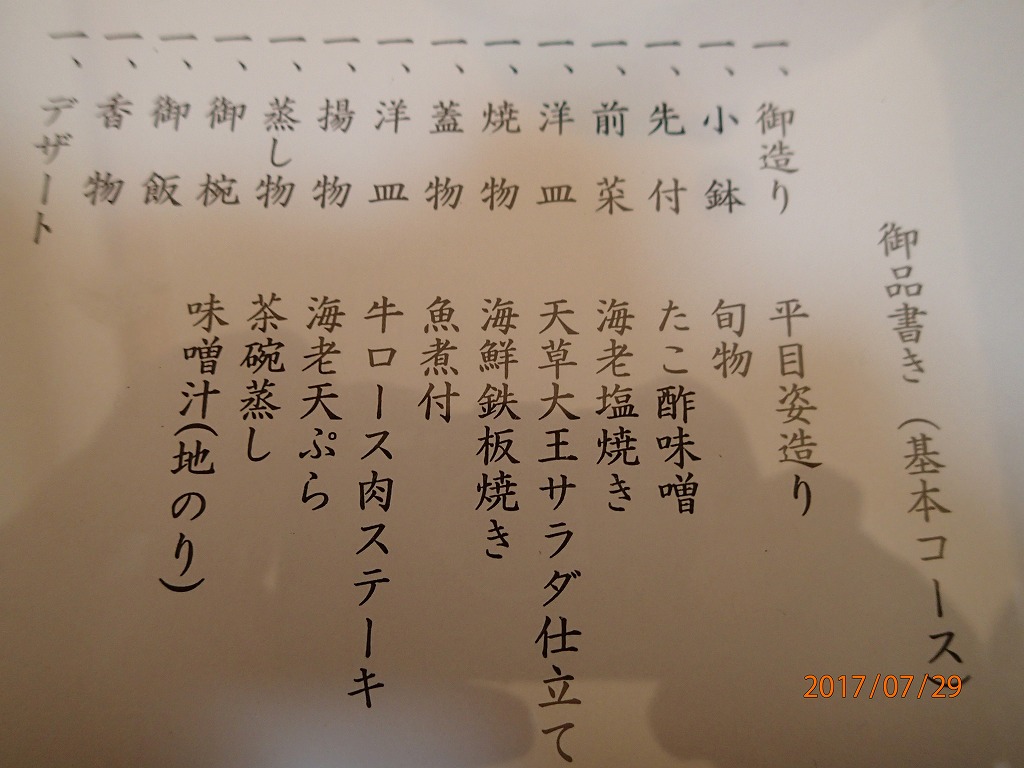 御品書き（基本コース）
一、御造り　平目姿造り
一、小鉢　旬物
一、先付　たこ酢味噌
一、前菜　海老塩焼き
一、洋皿　天草大王サラダ仕立て
一、焼物　海鮮鉄板焼き
一、蓋物　魚煮付
一、洋皿　牛ロース肉ステーキ
一、揚物　海老天ぷら
一、蒸し物　茶碗蒸し
一、御椀　味噌汁（地のり）
一、御飯
一、香物
一、デザート
2017/07/29